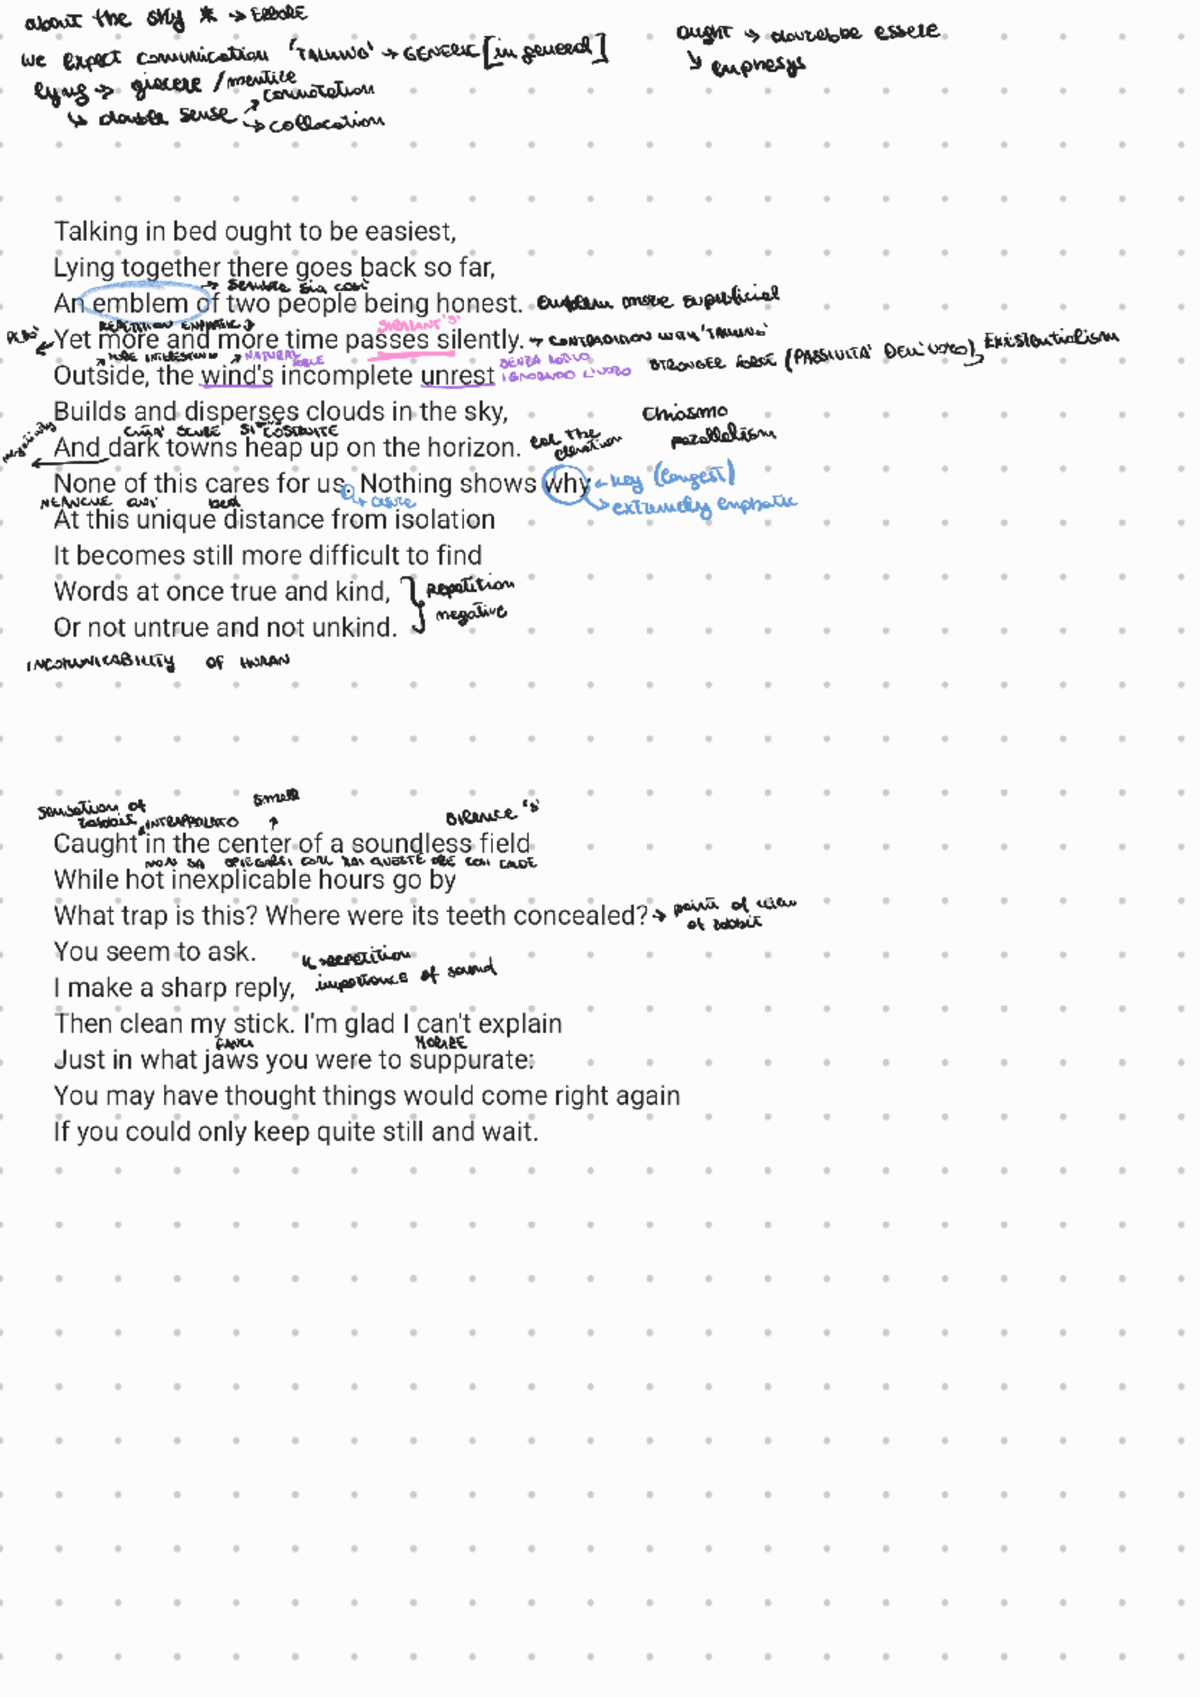 about the sky * → ERRORE
we expect comunication 'TALKING' → GENERIC [in general]
ought → dovrebbe essere
↳ emphesys
lying → giacere / mentire
↳ double sense → connotation
→ collocation
Talking in bed ought to be easiest,
Lying together there goes back so far,
→ sembra sia così
An emblem of two people being honest. emblem more superficial
REPETITION EMPHATIC
SIBILANT 'S'
Yet more and more time passes silently. → CONTRADDITION WITH 'TALKING'
MORE INTERESTING → NATURAL
SENZA UOMO
IGNORANDO L'UOMO
STRONGER FORCE (PASSIVITA' DELL'UOMO) Existentialism
Outside, the wind's incomplete unrest
Builds and disperses clouds in the sky,
CITTA' SCURE SI COSTRUITE
Chiasmo
parallelism
And dark towns heap up on the horizon.
None of this cares for us. Nothing shows why → key (longest)
→ extremely emphatic
At this unique distance from isolation
It becomes still more difficult to find
Words at once true and kind,
repetition
negative
Or not untrue and not unkind.
INCOMUNICABILITY OF HUMAN
sensation of
rabbit
INTRAPPOLATO
small
SILENCE 's'
Caught in the center of a soundless field
NON SA SPIEGARSI COM MAI QUESTE ORE COSI CALDE
While hot inexplicable hours go by
What trap is this? Where were its teeth concealed? → point of view
of rabbit
You seem to ask.
k → repetition
importance of sound
I make a sharp reply,
Then clean my stick. I'm glad I can't explain
MORIRE
Just in what jaws you were to suppurate:
You may have thought things would come right again
If you could only keep quite still and wait.